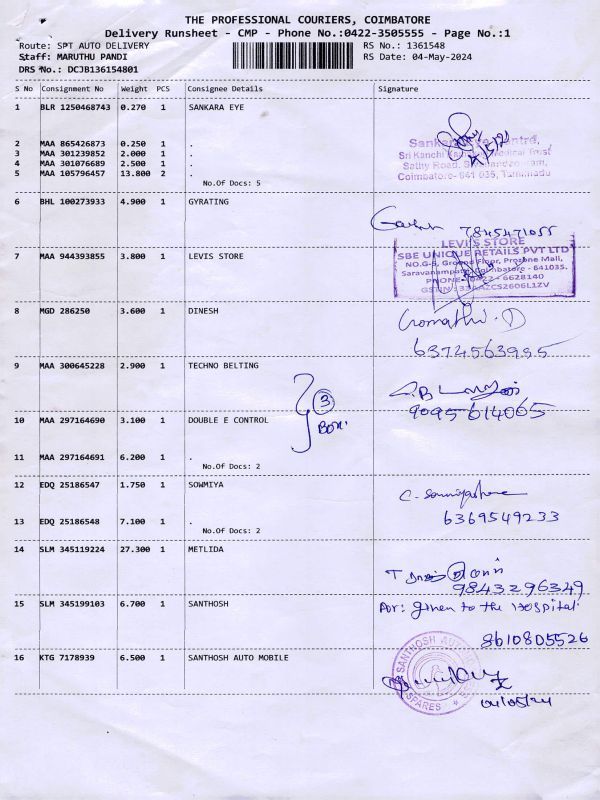 THE PROFESSIONAL COURIERS, COIMBATORE
Delivery Runsheet - CMP - Phone No.:0422-3505555 - Page No.:1
Route: SPT AUTO DELIVERY RS No.: 1361548
Staff: MARUTHU PANDI RS Date: 04-May-2024
DRS No.: DCJB136154801
S No Consignment No Weight PCS Consignee Details Signature
1 BLR 1250468743 0.270 1 SANKARA EYE
2 MAA 865426873 0.250 1 .
3 MAA 301239852 2.000 1 .
4 MAA 301076689 2.500 1 .
5 MAA 105796457 13.800 2 .
No.Of Docs: 5
Sri Kanchi Medical Trust
Sathy Road,
Coimbatore- 641 035, Tamilnadu
6 BHL 100273933 4.900 1 GYRATING
7845471055
7 MAA 944393855 3.800 1 LEVIS STORE
LEVI'S STORE
SBE UNIQUE RETAILS PVT LTD
NO.G-5, Ground Floor, Prozone Mall,
Saravanampatti, Coimbatore - 641035.
PHONE: 0422 - 6628140
8 MGD 286250 3.600 1 DINESH
Gomathi. D
6374563995
9 MAA 300645228 2.900 1 TECHNO BELTING
3
Box.
9095614065
10 MAA 297164690 3.100 1 DOUBLE E CONTROL
11 MAA 297164691 6.200 1 .
No.Of Docs: 2
12 EDQ 25186547 1.750 1 SOWMIYA
6369549233
13 EDQ 25186548 7.100 1 .
No.Of Docs: 2
14 SLM 345119224 27.300 1 METLIDA
9843296349
15 SLM 345199103 6.700 1 SANTHOSH
given to the Hospital.
8610805526
16 KTG 7178939 6.500 1 SANTHOSH AUTO MOBILE
SANTHOSH AUTO
SPARES
04/05/24